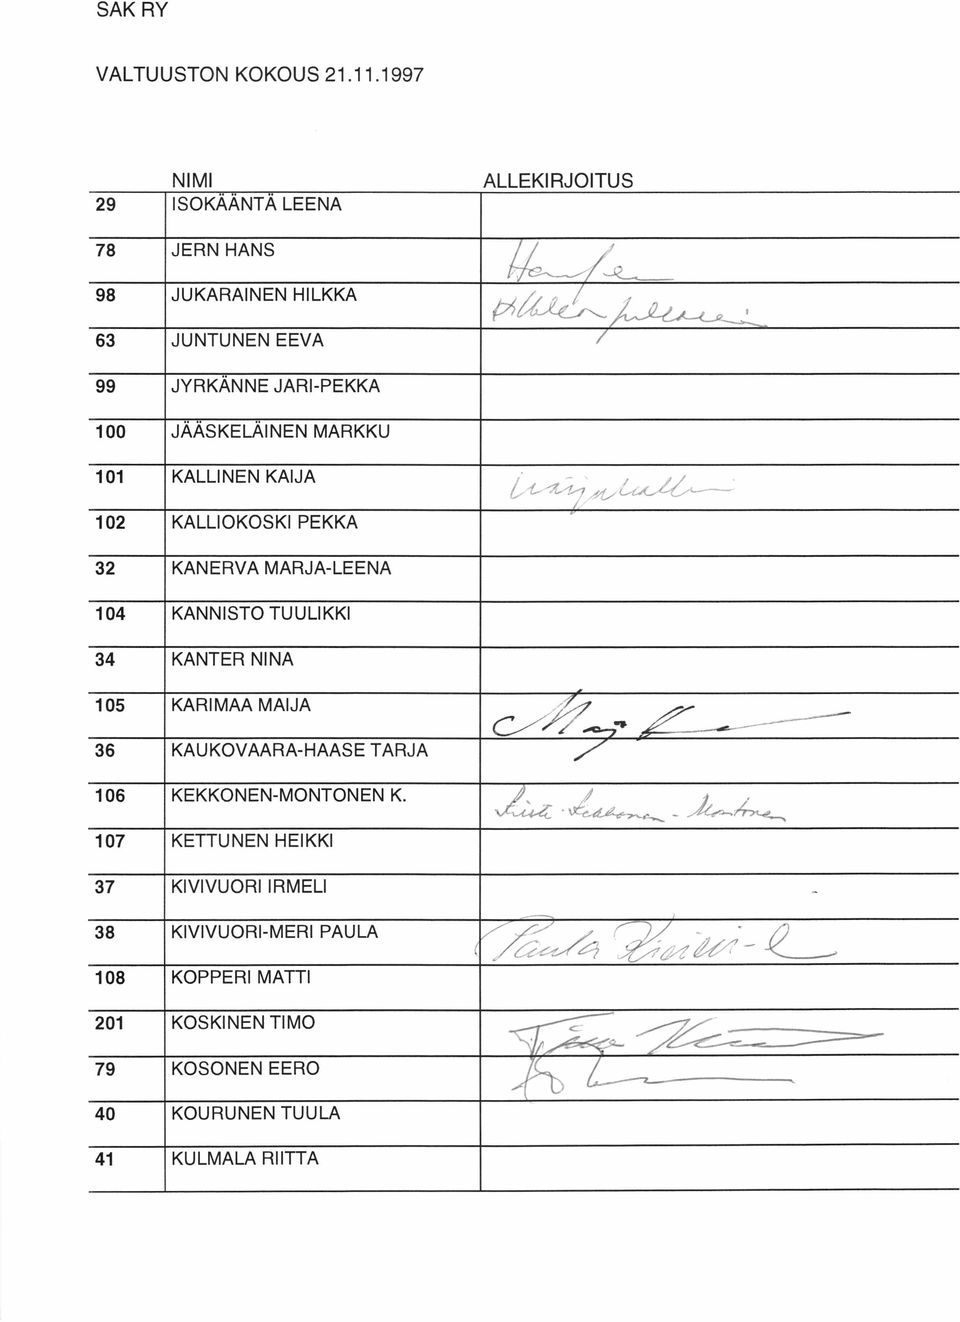 SAK RY
VALTUUSTON KOKOUS 21.11.1997
NIMI ALLEKIRJOITUS
29 ISOKÄÄNTÄ LEENA
78 JERN HANS
98 JUKARAINEN HILKKA
63 JUNTUNEN EEVA
99 JYRKÄNNE JARI-PEKKA
100 JÄÄSKELÄINEN MARKKU
101 KALLINEN KAIJA
102 KALLIOKOSKI PEKKA
32 KANERVA MARJA-LEENA
104 KANNISTO TUULIKKI
34 KANTER NINA
105 KARIMAA MAIJA
36 KAUKOVAARA-HAASE TARJA
106 KEKKONEN-MONTONEN K.
107 KETTUNEN HEIKKI
37 KIVIVUORI IRMELI
38 KIVIVUORI-MERI PAULA Paula
108 KOPPERI MATTI
201 KOSKINEN TIMO
79 KOSONEN EERO
40 KOURUNEN TUULA
41 KULMALA RIITTA